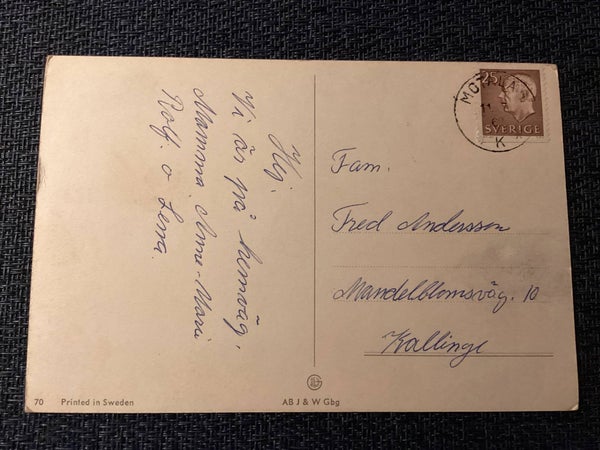 Hej.
Vi är på hemväg.
Mamma, Anne-Mari
Rolf. o Lena.
25
SVERIGE
K
Fam.
Fred Andersson
Mandelblomsväg. 10
Kallinge
70 Printed in Sweden
AB J & W Gbg